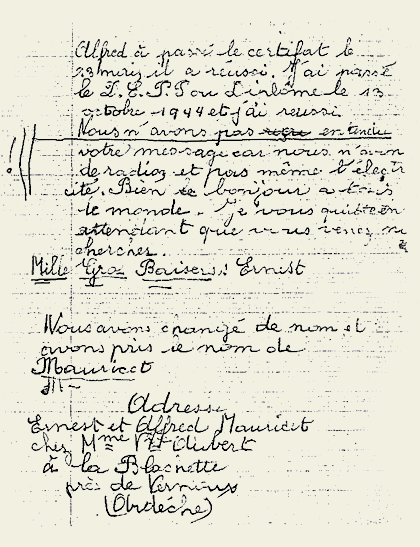 Alfred à passé le certifat le
23 mars il a réussi. J'ai passé
le D.E.P.P ou diplôme le 13
octobre 1944 et j'ai reussi.
Nous n'avons pas entendu
votre message car nous n'avon
de radios et pas même l'électr
ité. Bien le bonjour a tous
le monde. Je vous quitte en
attendant que vous venez me
chercher.
Mille Gros Baisers: Ernest
Nous avons changé de nom et
avons pris le nom de
Mauricet
Adresse
Ernest et Alfred Mauricet
chez Mme Vve Aubert
à la Blachette
près de Vernoux
(Ardèche)